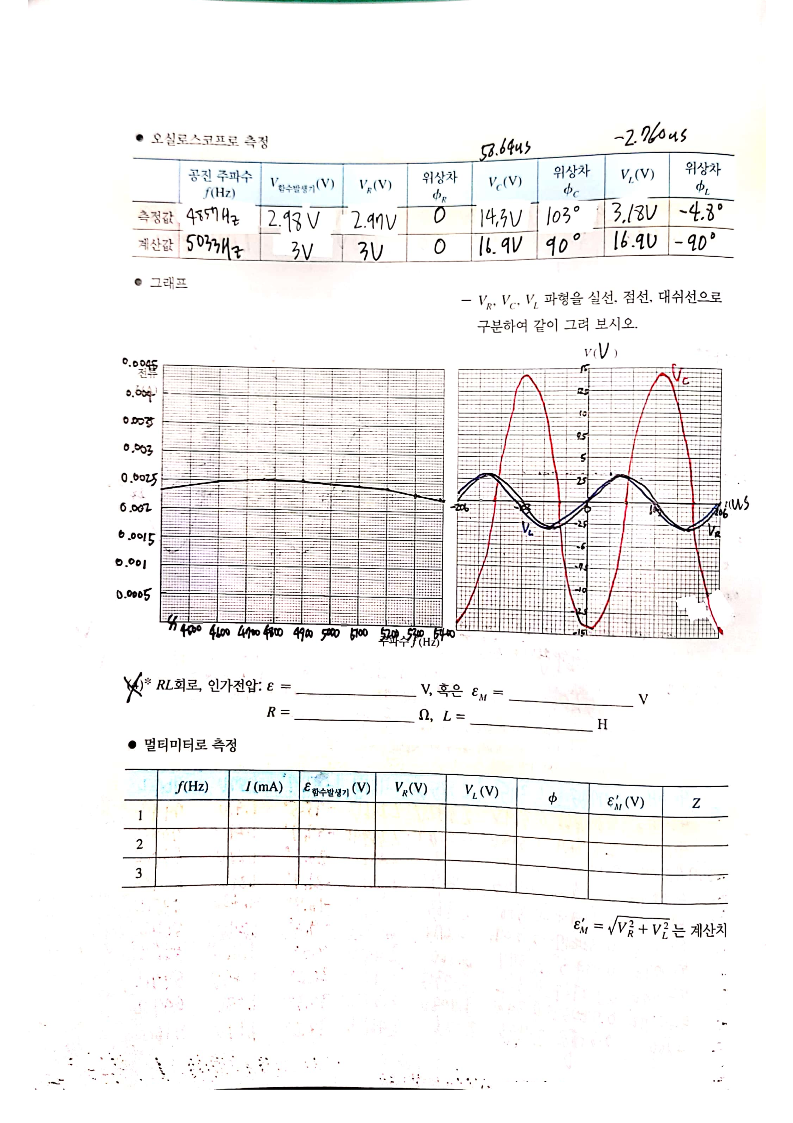 ● 오실로스코프로 측정
58.64us -2.760us
공진 주파수 f(Hz) V함수발생기(V) V_R(V) 위상차 ϕ_R V_C(V) 위상차 ϕ_C V_L(V) 위상차 ϕ_L
측정값 4857Hz 2.98V 2.97V 0 14.3V 103° 3.18V -4.8°
계산값 5033Hz 3V 3V 0 16.9V 90° 16.9V -90°
● 그래프
– V_R, V_C, V_L 파형을 실선, 점선, 대쉬선으로
구분하여 같이 그려 보시오.
V(V)
0.0045
전류
0.004
0.0035
0.003
0.0025
0.002
0.0015
0.001
0.0005
4500 4600 4700 4800 4900 5000 5100 5200 5300 5400
주파수 f(Hz)
15
12.5
10
7.5
5
2.5
-206 -103 0 103 206 us
-2.5
-5
-7.5
-10
-12.5
-15
V_C
V_L
V_R
(4)* RL회로, 인가전압: ε = V, 혹은 ε_M = V
R = Ω, L = H
● 멀티미터로 측정
f(Hz) I(mA) ε함수발생기(V) V_R(V) V_L(V) ϕ ε′_M(V) Z
1
2
3
ε′_M = √(V_R² + V_L²)는 계산치